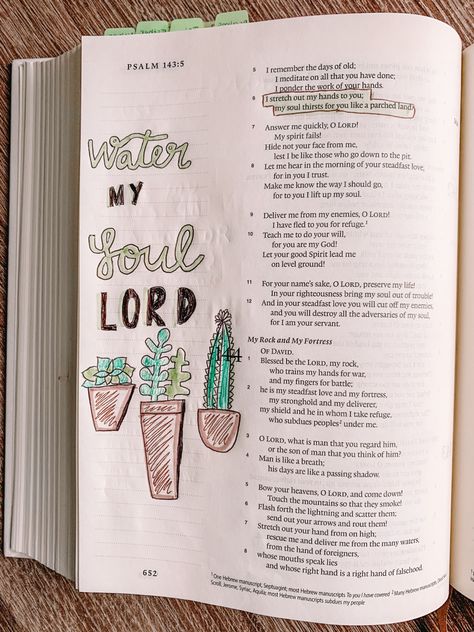 PSALM 143:5
Water
MY
Soul
LORD
652
5 I remember the days of old;
I meditate on all that you have done;
I ponder the work of your hands.
6 I stretch out my hands to you;
my soul thirsts for you like a parched land.
7 Answer me quickly, O LORD!
My spirit fails!
Hide not your face from me,
lest I be like those who go down to the pit.
8 Let me hear in the morning of your steadfast love,
for in you I trust.
Make me know the way I should go,
for to you I lift up my soul.
9 Deliver me from my enemies, O LORD!
I have fled to you for refuge.¹
10 Teach me to do your will,
for you are my God!
Let your good Spirit lead me
on level ground!
11 For your name's sake, O LORD, preserve my life!
In your righteousness bring my soul out of trouble!
12 And in your steadfast love you will cut off my enemies,
and you will destroy all the adversaries of my soul,
for I am your servant.
My Rock and My Fortress
144 OF DAVID.
1 Blessed be the LORD, my rock,
who trains my hands for war,
and my fingers for battle;
2 he is my steadfast love and my fortress,
my stronghold and my deliverer,
my shield and he in whom I take refuge,
who subdues peoples² under me.
3 O LORD, what is man that you regard him,
or the son of man that you think of him?
4 Man is like a breath;
his days are like a passing shadow.
5 Bow your heavens, O LORD, and come down!
Touch the mountains so that they smoke!
6 Flash forth the lightning and scatter them;
send out your arrows and rout them!
7 Stretch out your hand from on high;
rescue me and deliver me from the many waters,
from the hand of foreigners,
8 whose mouths speak lies
and whose right hand is a right hand of falsehood.
¹ One Hebrew manuscript, Septuagint; most Hebrew manuscripts To you I have covered ² Many Hebrew manuscripts, Dead
Scroll, Jerome, Syriac, Aquila; most Hebrew manuscripts subdues my people